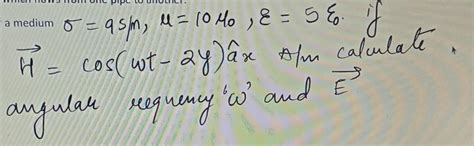 which flows from one pipe to another.
a medium σ = 9 s/m, μ = 10 μ₀, ε = 5 ε₀. if
H⃗ = cos(ωt - 2y) âx A/m calculate
angular requency 'ω' and E⃗